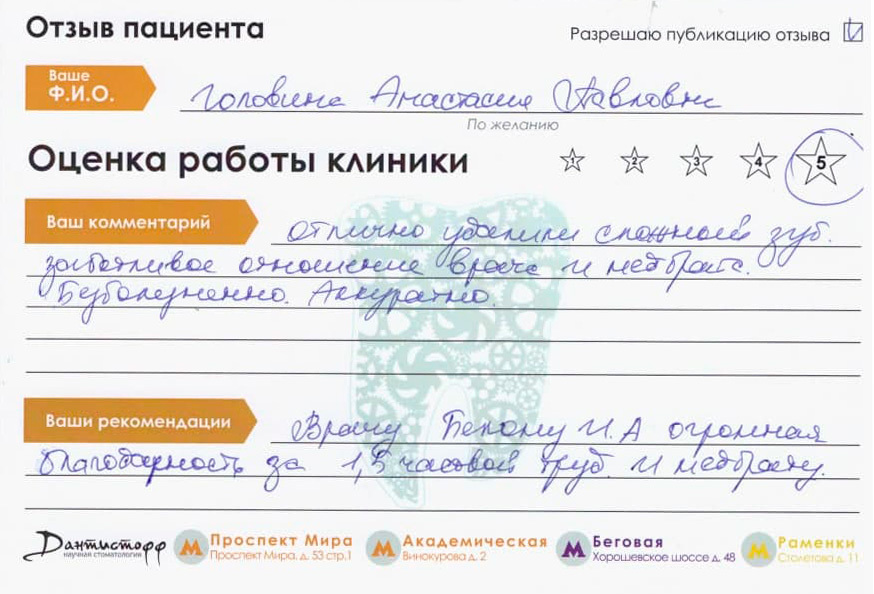 Отзыв пациента
Разрешаю публикацию отзыва
Ваше
Ф.И.О.
Головина Анастасия Павловна
По желанию
Оценка работы клиники
1 2 3 4 5
Ваш комментарий
Отлично удалили сложный зуб.
заботливое отношение врача и медбрата.
Безболезненно. Аккуратно.
Ваши рекомендации
Врачу Белому И.А огромная
благодарность за 1,5 часовой труд. и медбрату.
Дантистофф
научная стоматология
М Проспект Мира
Проспект Мира, д. 53 стр.1
М Академическая
Винокурова д. 2
М Беговая
Хорошевское шоссе д. 48
М Раменки
Столетова д. 11